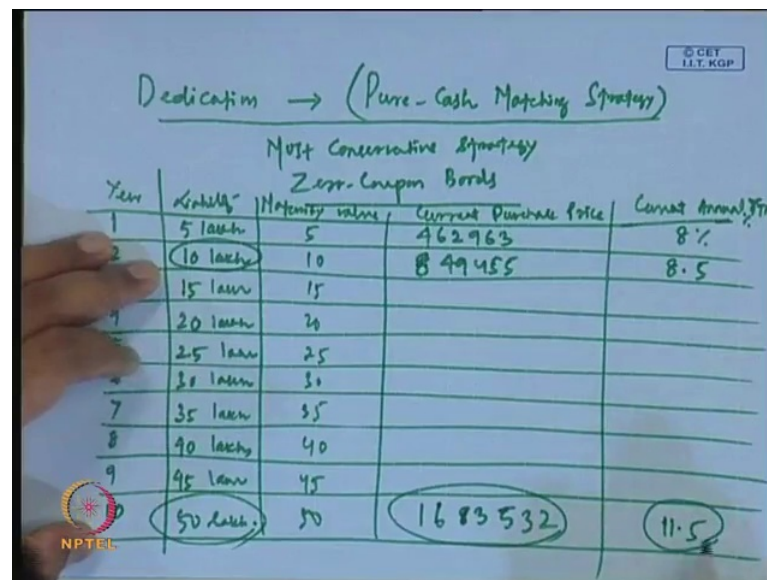 © CET
I.I.T. KGP
Dedication → (Pure-Cash Matching Strategy)
Most Conservative Strategy
Zero-Coupon Bonds
Year Liability Maturity value Current Purchase Price Current Annual
1 5 lakh 5 462963 8%
2 10 lakh 10 849455 8.5
15 lakh 15
4 20 lakh 20
25 lakh 25
30 lakh 30
7 35 lakh 35
8 40 lakh 40
9 45 lakh 45
50 lakh. 50 1683532 11.5
NPTEL